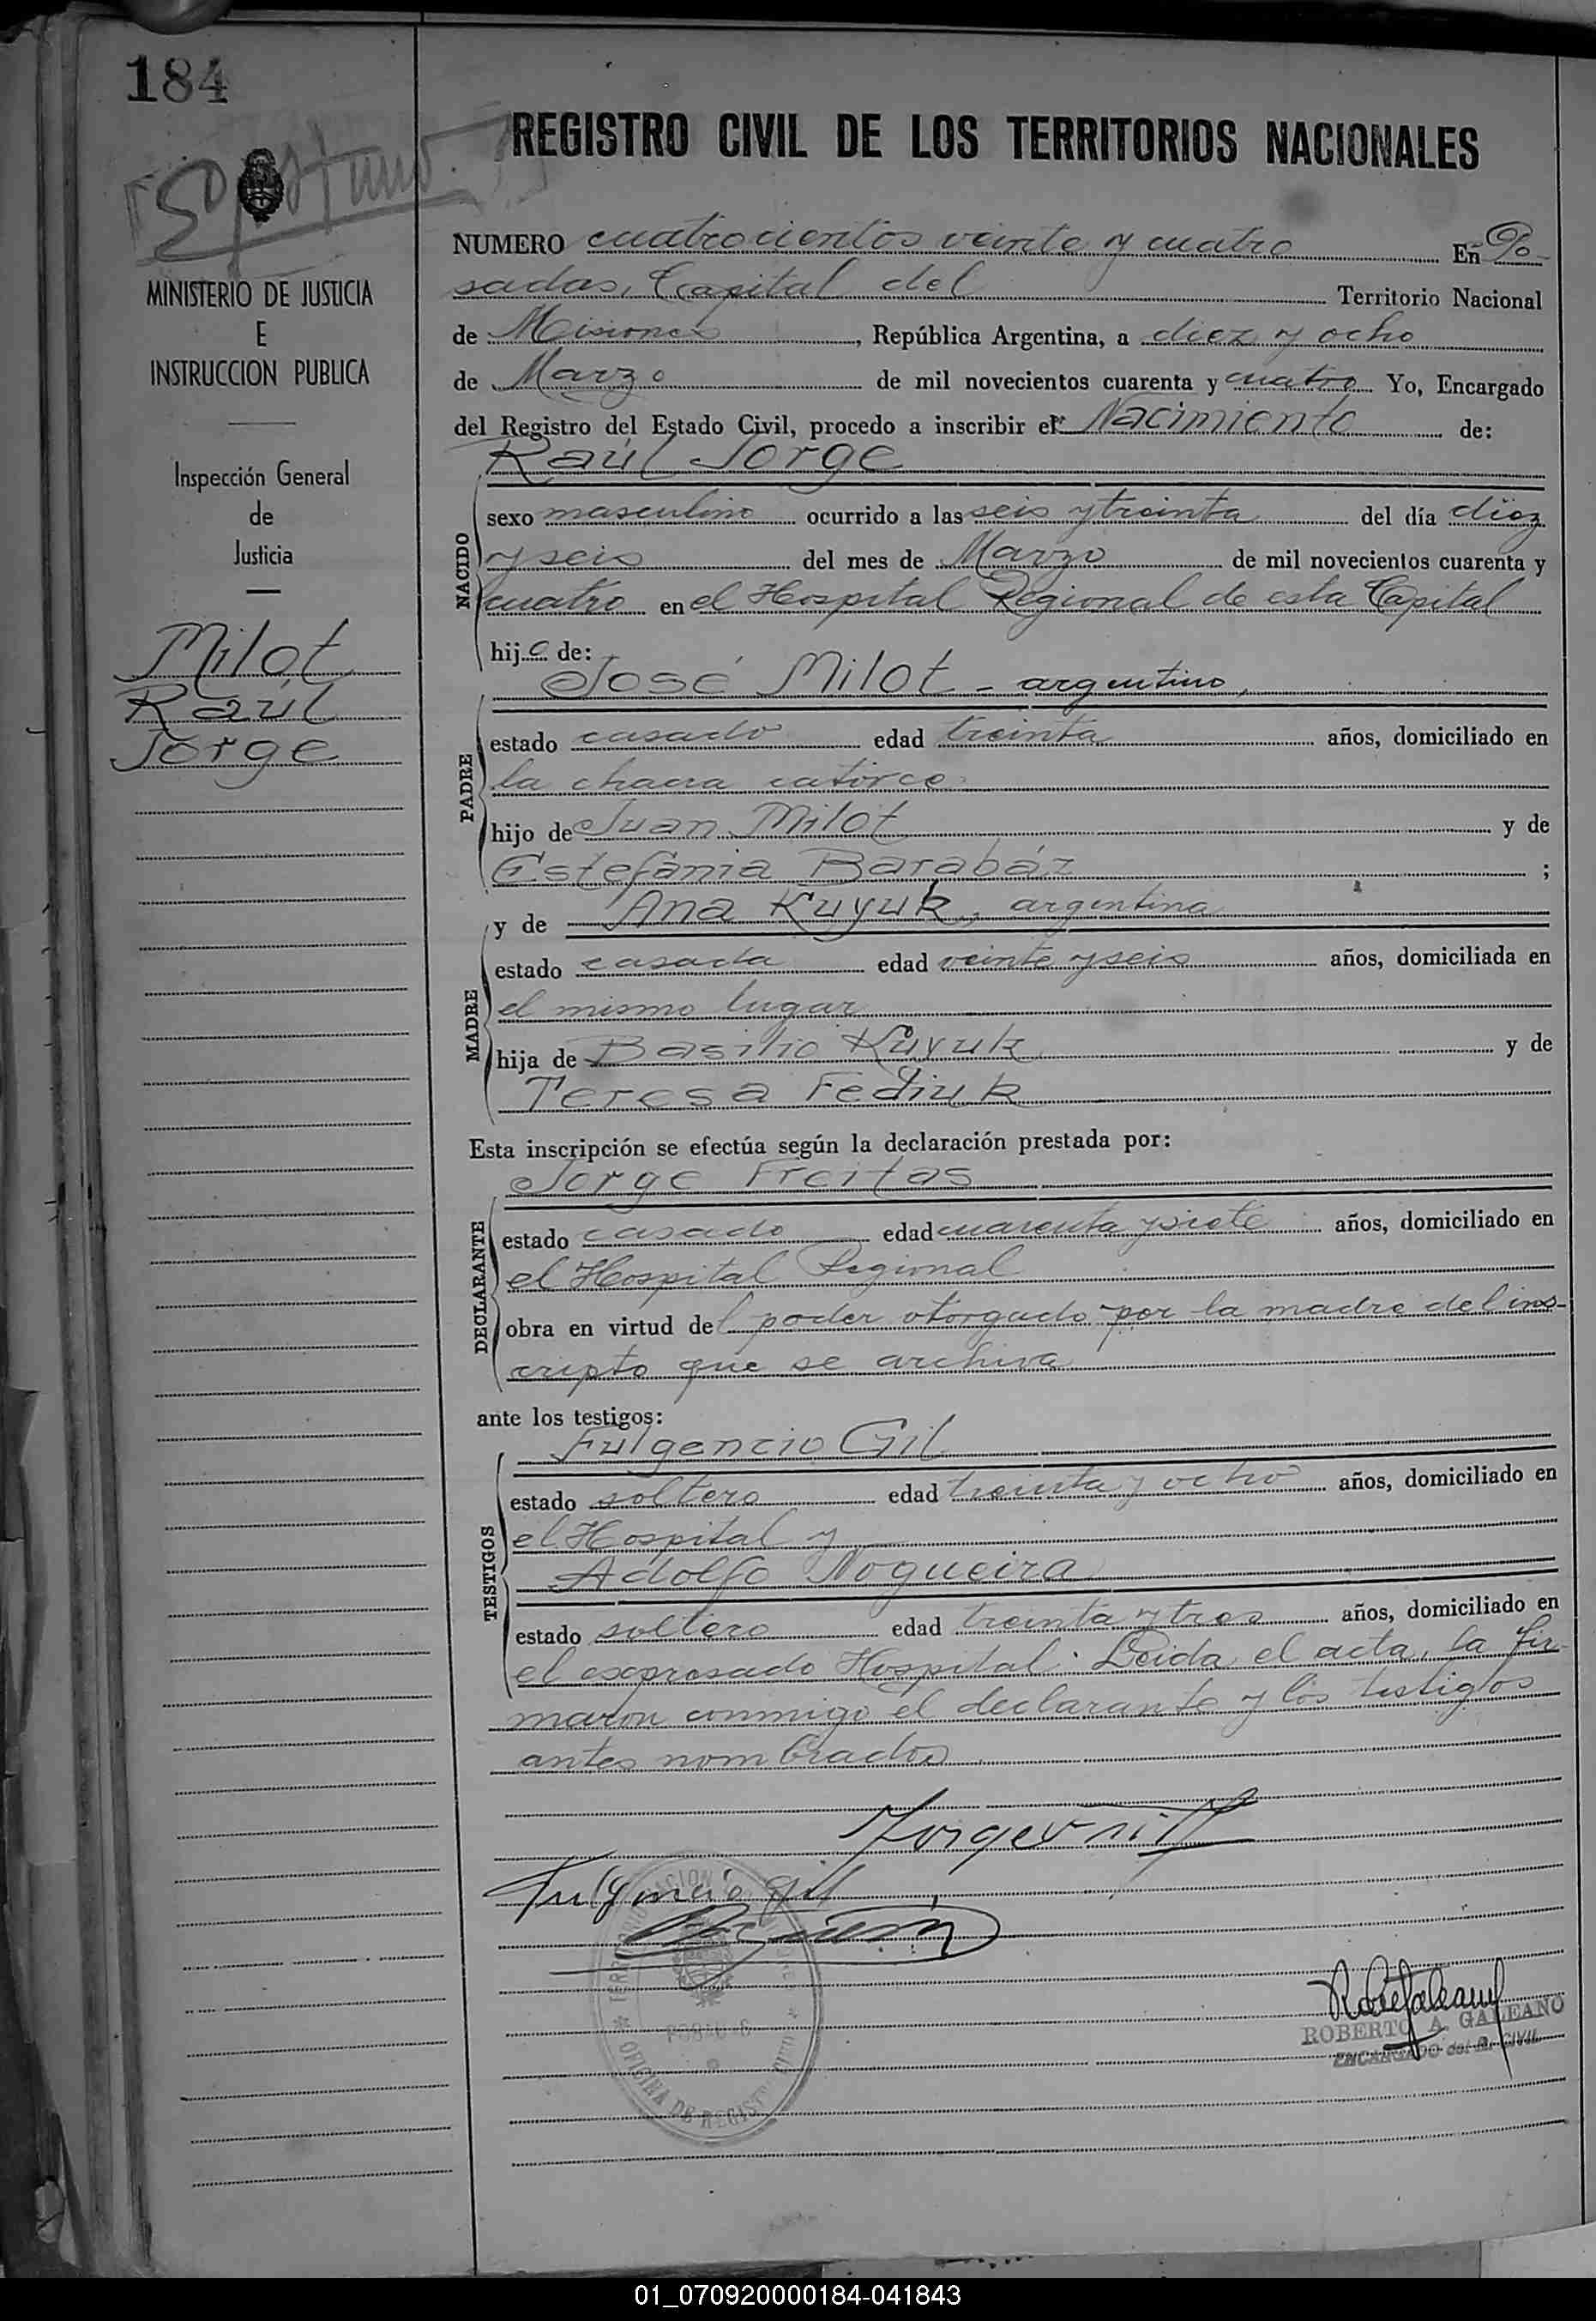 184
REGISTRO CIVIL DE LOS TERRITORIOS NACIONALES
MINISTERIO DE JUSTICIA
E
INSTRUCCION PUBLICA
Inspección General
de
Justicia
Milot
Raúl
Jorge
NUMERO cuatrocientos veinte y cuatro En Po-
sadas, Capital del Territorio Nacional
de Misiones, República Argentina, a diez y ocho
de Marzo de mil novecientos cuarenta y cuatro Yo, Encargado
del Registro del Estado Civil, procedo a inscribir el Nacimiento de:
Raúl Jorge
NACIDO
sexo masculino ocurrido a las seis y treinta del día diez
y seis del mes de Marzo de mil novecientos cuarenta y
cuatro en el Hospital Regional de esta Capital
hijo de:
José Milot - argentino,
PADRE
estado casado edad treinta años, domiciliado en
la chacra catorce
hijo de Juan Milot y de
Estefania Barabáz ;
y de Ana Kuyuk, argentina
MADRE
estado casada edad veinte y seis años, domiciliada en
el mismo lugar
hija de Basilio Kuyuk y de
Teresa Fediuk
Esta inscripción se efectúa según la declaración prestada por:
Jorge Freitas
DECLARANTE
estado casado edad cuarenta y siete años, domiciliado en
el Hospital Regional
obra en virtud del poder otorgado por la madre del ins-
cripto que se archiva
ante los testigos:
Fulgencio Gil
TESTIGOS
estado soltero edad treinta y ocho años, domiciliado en
el Hospital y
Adolfo Nogueira
estado soltero edad treinta y tres años, domiciliado en
el expresado Hospital. Leida el acta, la fir-
maron conmigo el declarante y los testigos
antes nombrados
Fulgencio Gil
OFICINA DE REGISTRO CIVIL
ROBERTO A. GALEANO
ENCARGADO del R. CIVIL
01_070920000184-041843